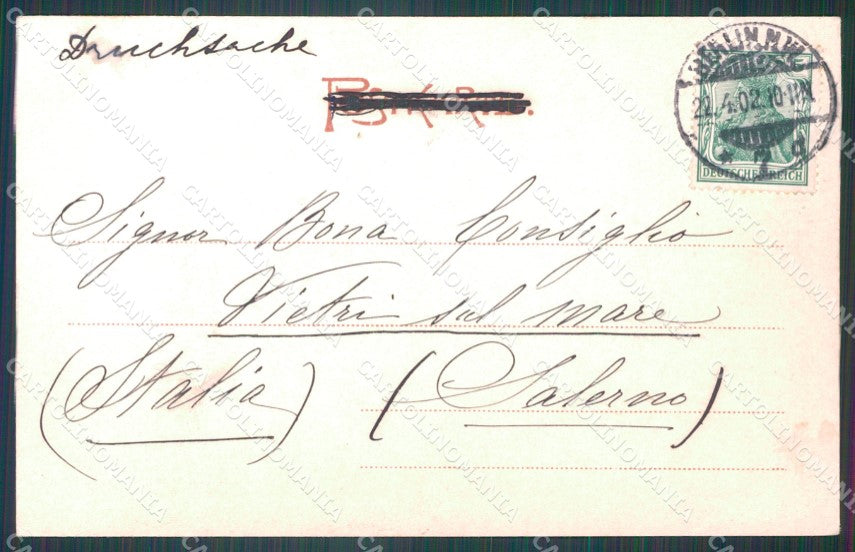 Drucksache
BERLIN N.W.
4.02.10-11N
* 7 d
DEUTSCHES REICH
Signor Bona Consiglio
Vietri sul mare
(Italia) (Salerno)
CARTOLINOMANIA